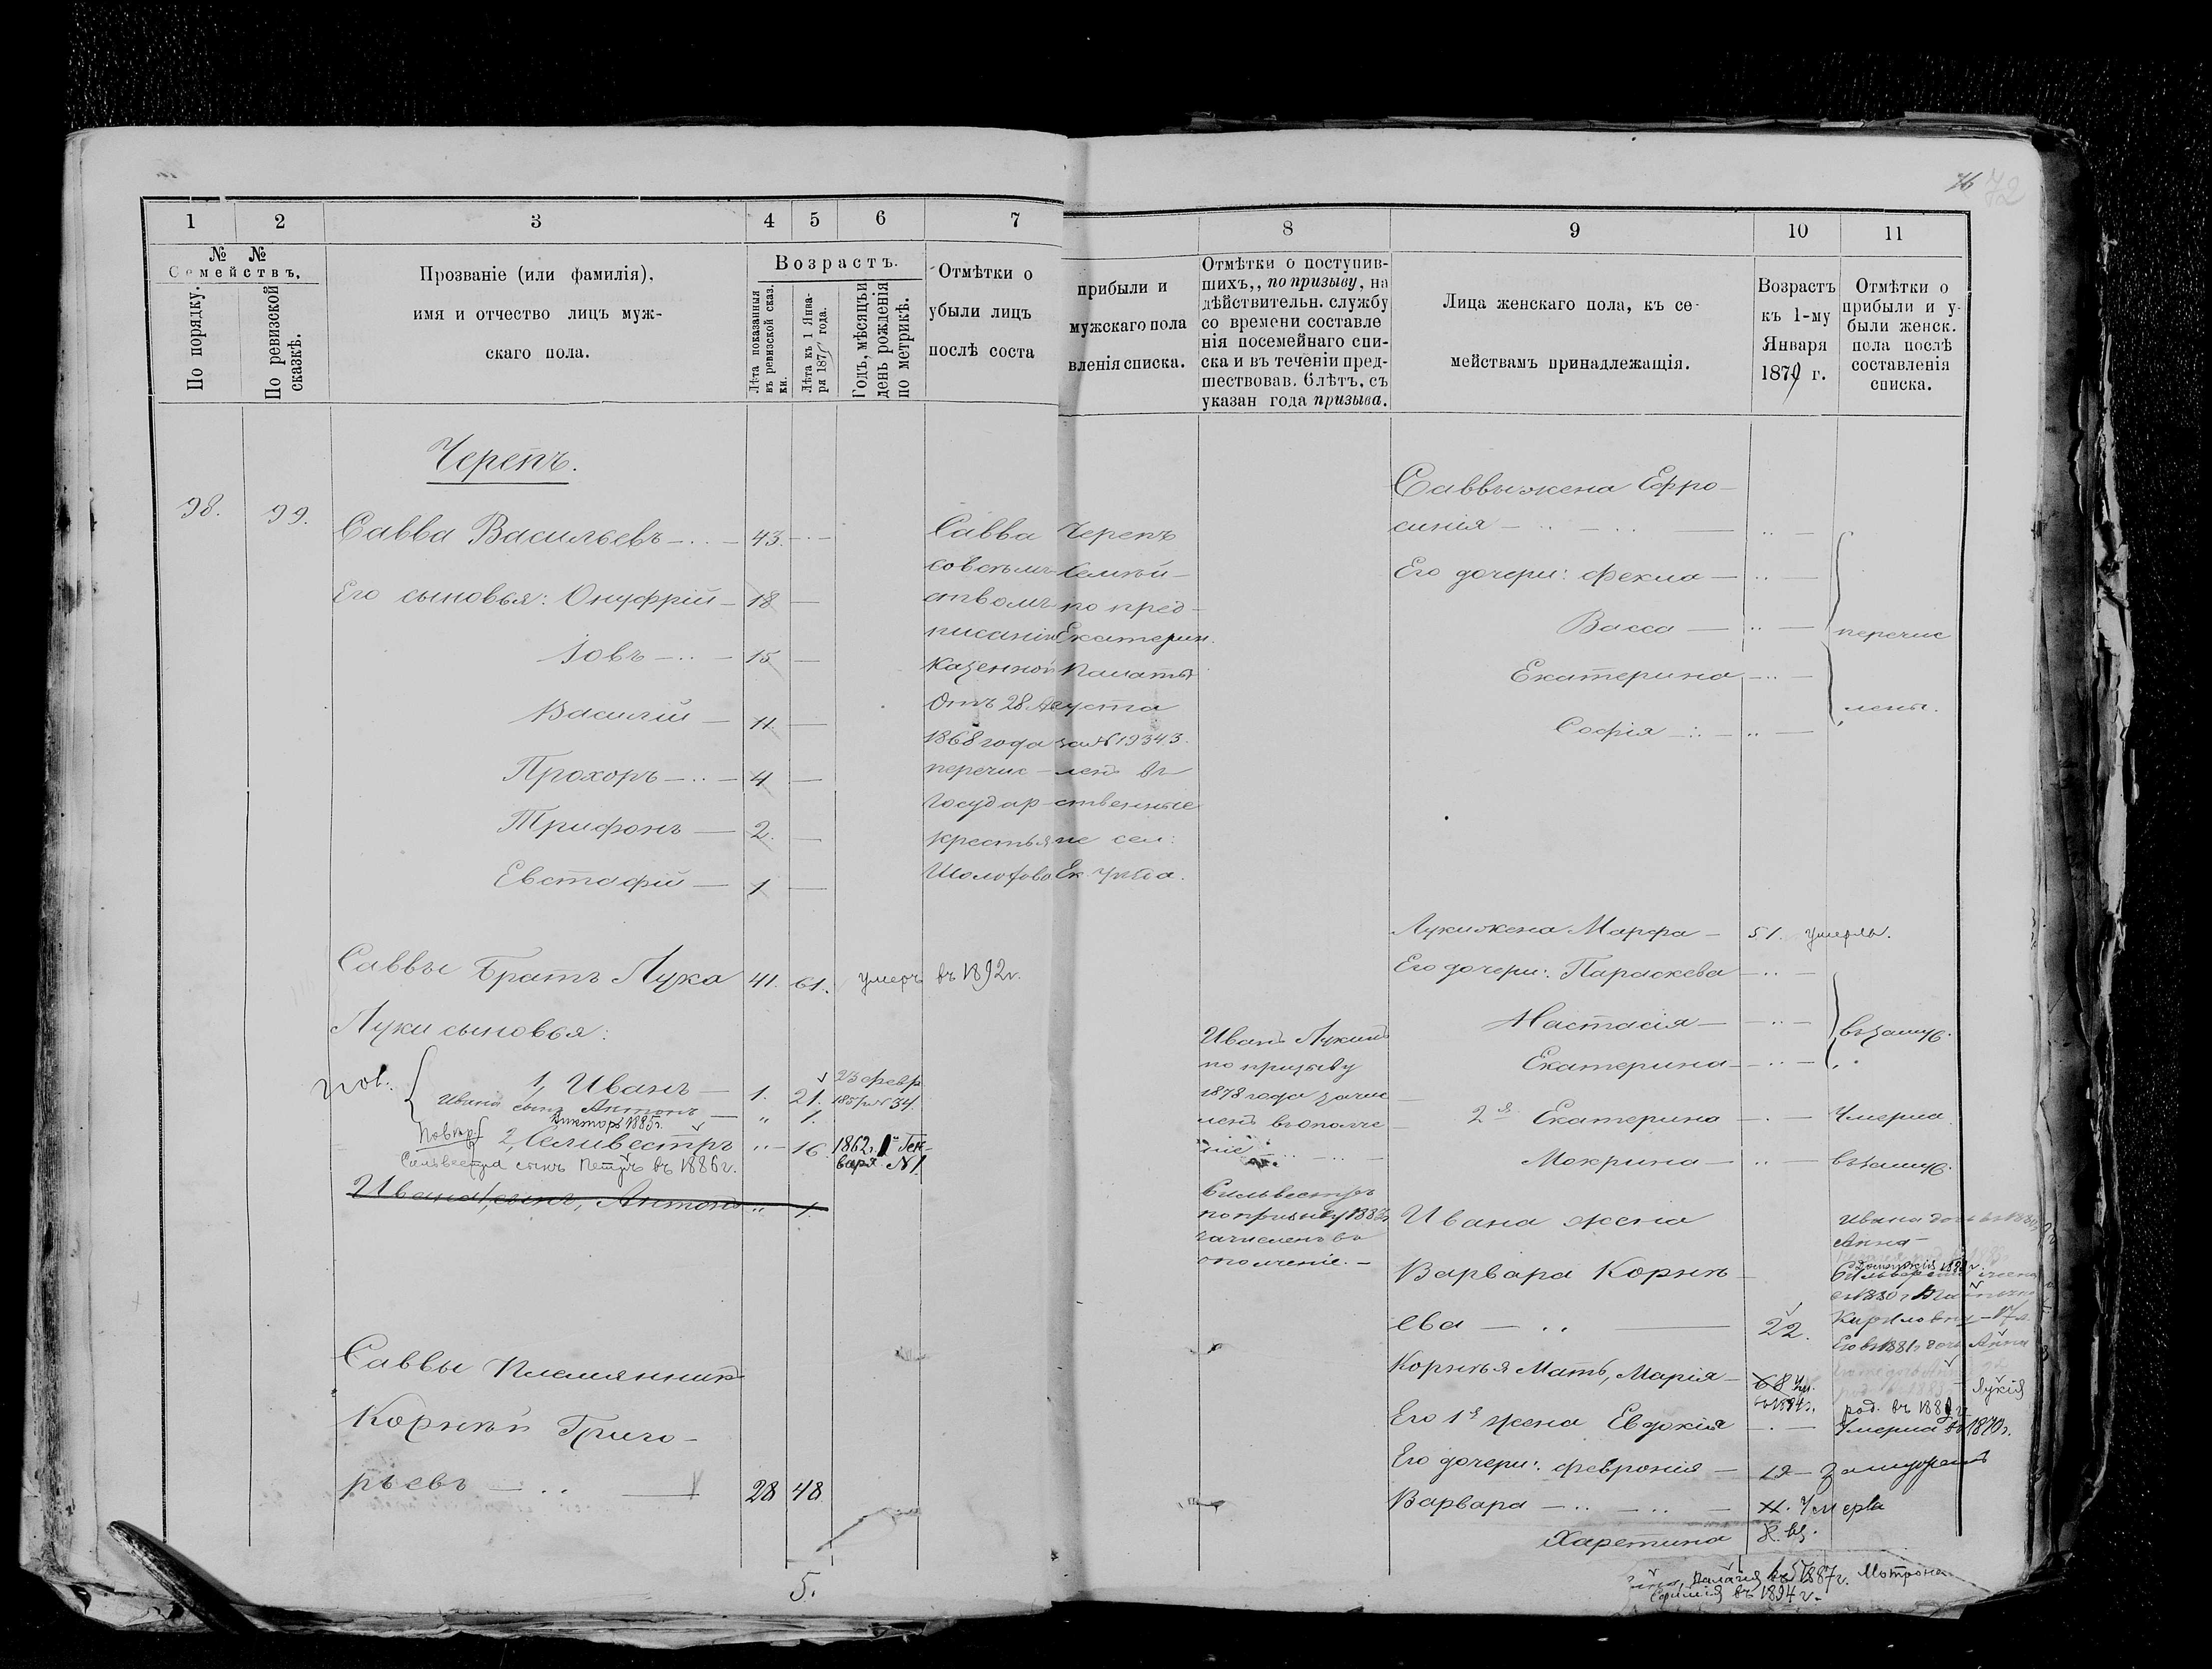 76 72
1
2
3
4
5
6
7
8
9
10
11
№ №
Семействъ.
По порядку.
По ревизской сказкѣ.
Прозваніе (или фамилія),
имя и отчество лицъ муж-
скаго пола.
Возрастъ.
Лѣта показанныя
въ ревизской сказ.
ки.
Лѣта къ 1 Янва-
ря 187 года.
Годъ, мѣсяцъ и
день рожденія
по метрикѣ.
Отмѣтки о
убыли лицъ
послѣ соста
прибыли и
мужскаго пола
вленія списка.
Отмѣтки о поступив-
шихъ,, по призыву, на
дѣйствительн. службу
со времени составле
нія посемейнаго спи-
ска и въ теченіи пред-
шествовав. 6 лѣтъ, съ
указан года призыва.
Лица женскаго пола, къ се-
мействамъ принадлежащія.
Возрастъ
къ 1-му
Января
1879 г.
Отмѣтки о
прибыли и у-
были женск.
пола послѣ
составленія
списка.
Черепъ.
98. 99.
Савва Васильевъ 43.
Его сыновья: Онуфрій 18
Іовъ 15
Василій 11.
Прохоръ 4
Трифонъ 2.
Евстафій 1
Савва Черепъ
совсѣмъ Семѣй-
ствомъ по пред-
писанію Екатерин.
Казенной Палаты
Отъ 28 Августа
1868 года за № 19343.
перечис-ленъ въ
Государ-ственные
крестьяне сел:
Ек. уѣзда.
Саввы жена Ефро-
синія
Его дочери: Фекла
Васса
Екатерина
Софія
перечис
лены.
Саввы Братъ Лука 41. 61. умеръ въ 1892 г.
Луки сыновья:
1, Иванъ 1. 21. 23 февр
1857 г. № 34.
Ивана сынъ Антонъ " 1.
Викторъ 1885 г.
2, Селивестръ 16. 1862 г. 1 Ген-
варя № 1
Сельвестра сынъ Петръ въ 1886 г.
Ивана, сынъ, Антонъ " 1.
Иванъ Лукинъ
по призыву
1878 года зачис
ленъ въ ополче
ніе
Сильвестръ
по призыву 1883
зачисленъ въ
ополченіе.
Луки жена Марфа 51. умерла.
Его дочери: Параскева
Настасія
Екатерина
въ замуж.
2я Екатерина Умерла
Мокрина въ замуж.
Ивана жена
Варвара Корнѣ-
ева 22.
Анна
Кириловна
Его въ 1881 г. дочь Анна
Лукія
род. въ 188
Саввы племянникъ
Корнѣй Григо-
рьевъ 28 48
Корнѣя Мать, Марія 68 Ум.
въ 1894 г.
Его 1я жена Евдокія Умерла въ 1870 г.
Его дочери: Февронія 12 замужемъ
Варвара 11. Умерла
Харетина 8.
5.
Палагія въ 1887 г. Мотрона
въ 1894 г.